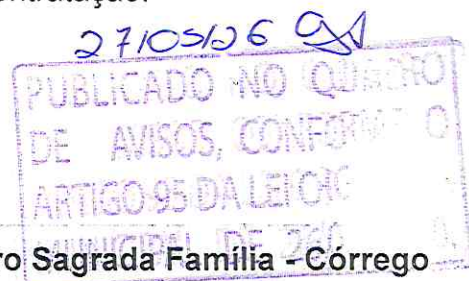 ontratação.
27/05/26
PUBLICADO NO QUADRO
DE AVISOS, CONFORME O
ARTIGO 95 DA LEI ORG
MUNICIPAL DE
ro Sagrada Família - Córrego